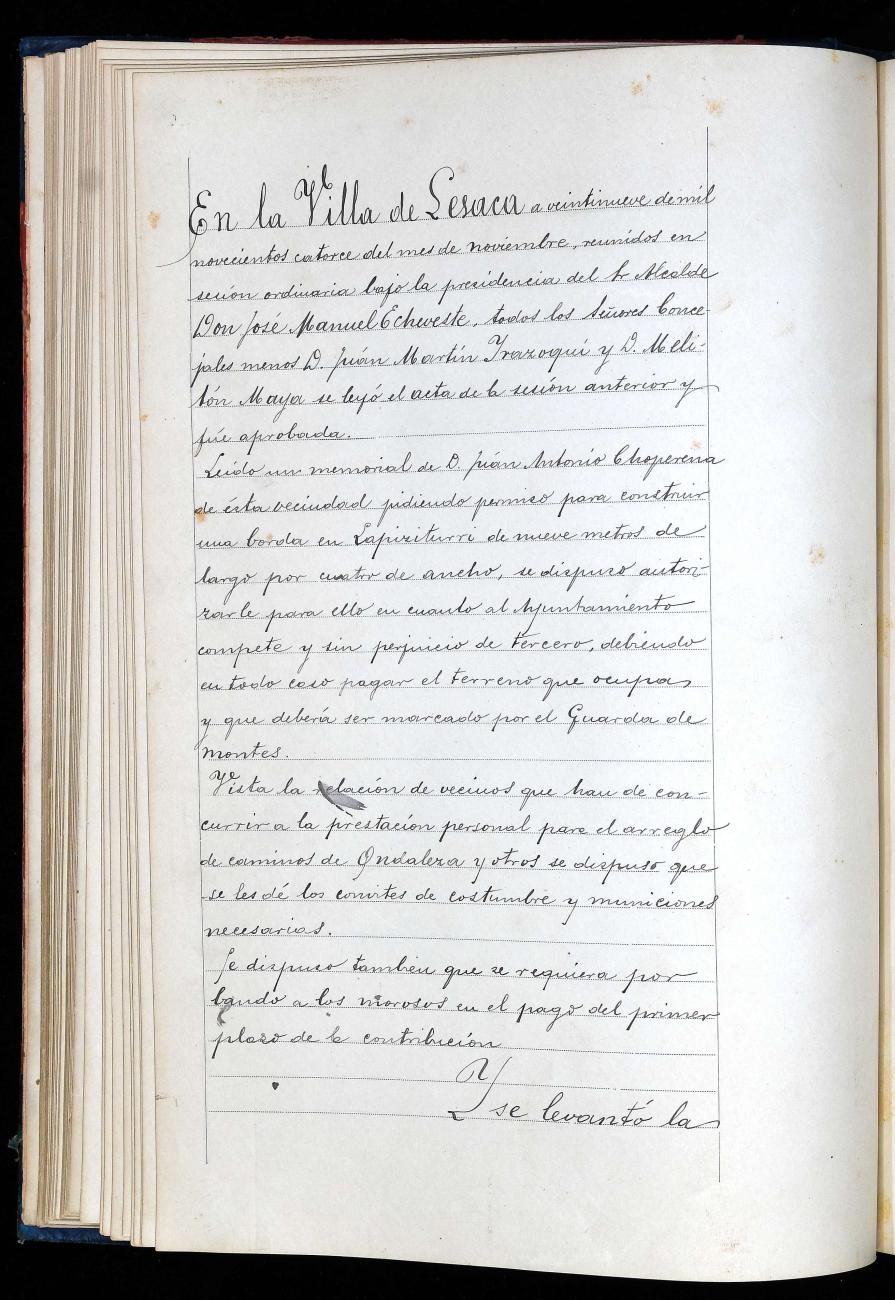 En la Villa de Lesaca a veintinueve de mil
novecientos catorce del mes de noviembre, reunidos en
sesión ordinaria bajo la presidencia del Sr Alcalde
Don José Manuel Echeveste, todos los Señores Conce-
jales menos D. Juán Martín Yrazoqui y D. Meli-
tón Maya se leyó el acta de la sesión anterior y
fué aprobada.
Leido un memorial de D. Juán Antonio Choperena
de ésta vecindad pidiendo permiso para construir
una borda en Lapiziturri de nueve metros de
largo por cuatro de ancho, se dispuso autori-
zarle para ello en cuanto al Ayuntamiento
compete y sin perjuicio de tercero, debiendo
en todo caso pagar el terreno que ocupa
y que deberá ser marcado por el Guarda de
montes.
Vista la relación de vecinos que han de con-
currir a la prestación personal para el arreglo
de caminos de Ondaleza y otros se dispuso que
se les dé los convites de costumbre y municiones
necesarias.
Se dispuso tambien que se requiera por
bando a los morosos en el pago del primer
plazo de la contribución
Y se levantó la